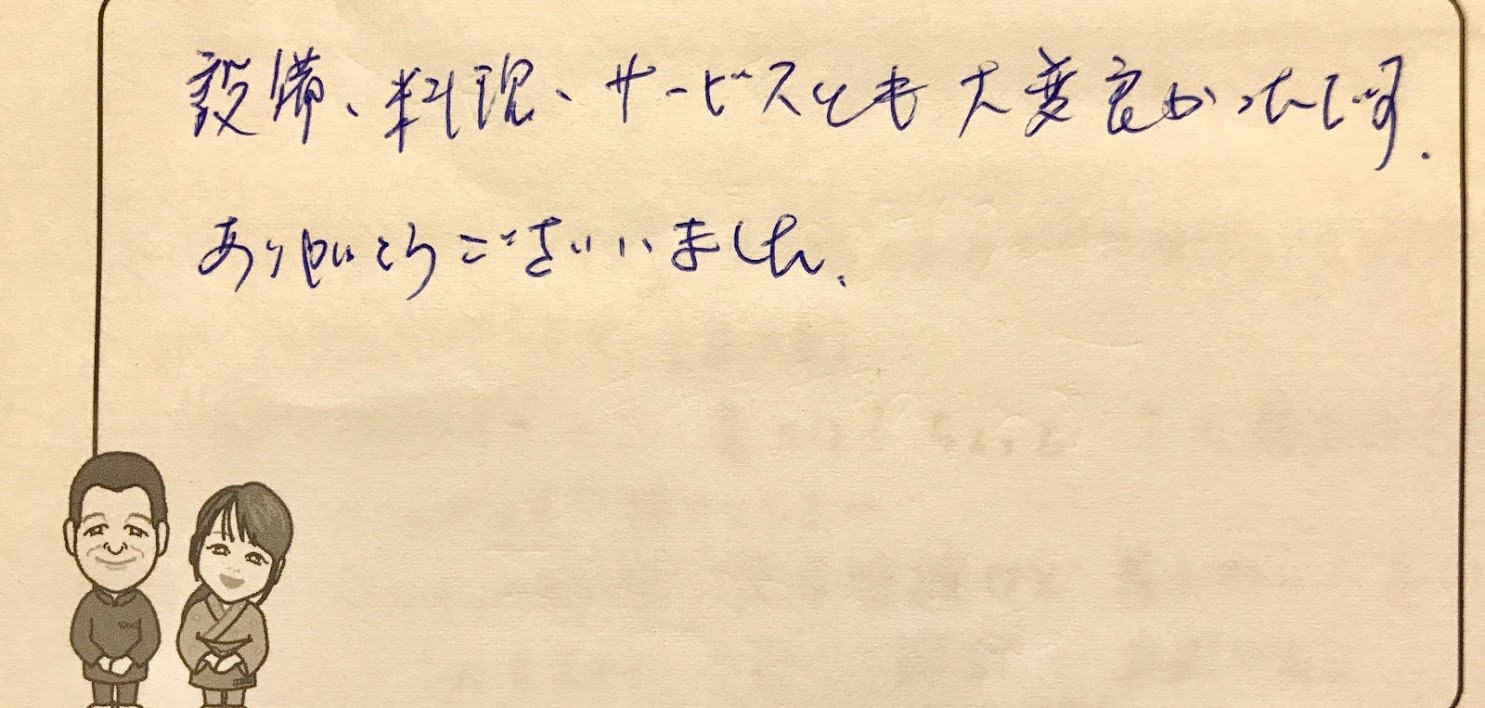 設備、料理、サービスとも大変良かったです.
ありがとうございました.